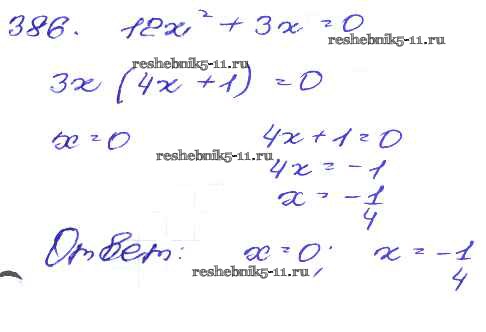 386. 12x² + 3x = 0
reshebnik5-11.ru
reshebnik5-11.ru
3x (4x + 1) = 0
x = 0 4x + 1 = 0
reshebnik5-11.ru
4x = -1
x = -1/4
Ответ: x = 0; x = -1/4
reshebnik5-11.ru